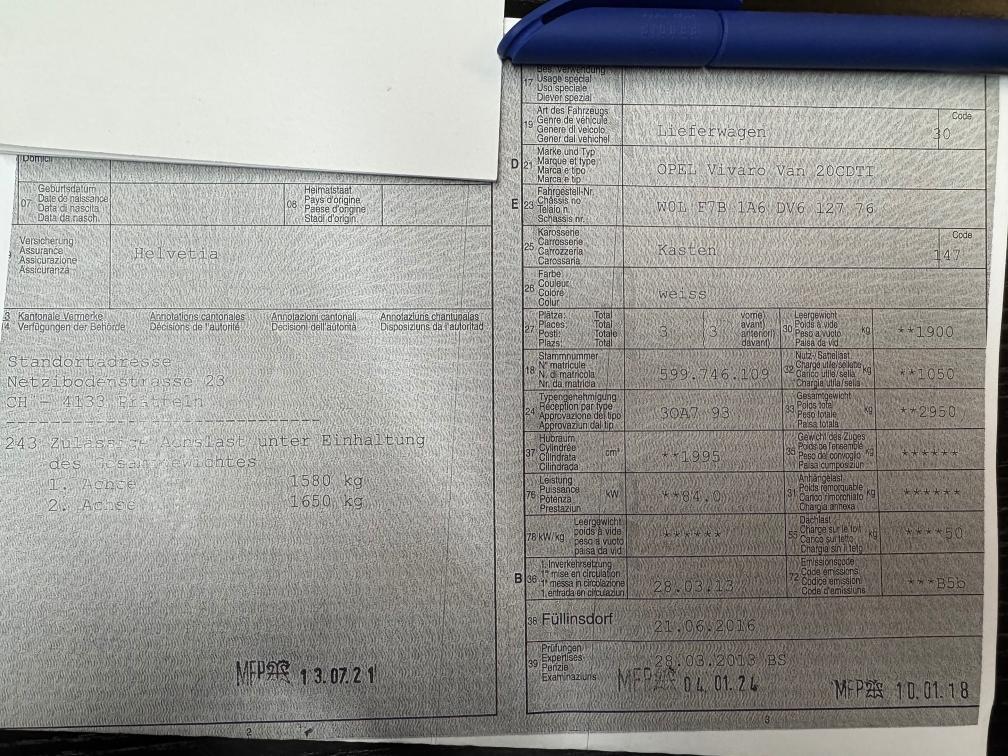 Domicil
07 Geburtsdatum
Date de naissance
Data di nascita
Data da nasch.
08 Heimatstaat
Pays d'origine
Paese d'origine
Stadi d'origin.
Versicherung
Assurance
Assicurazione
Assicuranza
Helvetia
3 Kantonale Vermerke Annotations cantonales Annotazioni cantonali Annotaziuns chantunalas
4 Verfügungen der Behörde Décisions de l'autorité Decisioni dell'autorità Disposiziuns da l'autoritad
Standortadresse
Netzibodenstrasse 23
CH - 4133 Pratteln
243 Zulässige Achslast unter Einhaltung
des Gesamtgewichtes
1. Achse 1580 kg
2. Achse 1650 kg
MFP 13.07.21
2
17 Bes. Verwendung
Usage spécial
Uso speciale
Diever spezial
19 Art des Fahrzeugs
Genre de véhicule
Genere di veicolo
Gener dal vehichel
Lieferwagen
Code
30
D 21 Marke und Typ
Marque et type
Marca e tipo
Marca e tip
OPEL Vivaro Van 20CDTI
E 23 Fahrgestell-Nr.
Châssis no
Telaio n.
Schassis nr.
W0L F7B 1A6 DV6 127 76
25 Karosserie
Carrosserie
Carrozzeria
Carossaria
Kasten
Code
147
26 Farbe
Couleur
Colore
Colur
weiss
27 Plätze: Total
Places: Total
Posti: Totale
Plazs: Total
3 3
vorne)
avant)
anteriori)
davant)
30 Leergewicht
Poids à vide
Peso a vuoto
Paisa da vid
kg
**1900
18 Stammnummer
N° matricule
N. di matricola
Nr. da matricla
599.746.109
32 Nutz-/Sattellast
Charge utile/sellette
Carico utile/sella
Chargia utila/sella
kg
**1050
24 Typengenehmigung
Réception par type
Approvazione del tipo
Approvaziun dal tip
3OA7 93
33 Gesamtgewicht
Poids total
Peso totale
Paisa totala
kg
**2950
37 Hubraum
Cylindrée
Cilindrata
Cilindrada
cm³
**1995
35 Gewicht des Zuges
Poids de l'ensemble
Peso del convoglio
Paisa cumposiziun
kg
******
76 Leistung
Puissance
Potenza
Prestaziun
kW
**84.0
31 Anhängelast
Poids remorquable
Carico rimorchiato
Chargia annexa
kg
******
78 kW/kg
Leergewicht
poids à vide
peso a vuoto
paisa da vid
******
55 Dachlast
Charge sur le toit
Carico sul tetto
Chargia sin il tetg
kg
****50
B 36 1. Inverkehrsetzung
1re mise en circulation
1a messa in circolazione
1. entrada en circulaziun
28.03.13
72 Emissionscode
Code émissions
Codice emissioni
Code d'emissiuns
***B5b
38 Füllinsdorf
21.06.2016
39 Prüfungen
Expertises
Perizie
Examinaziuns
28.03.2013 BS
MFP 04.01.24
MFP 10.01.18
3